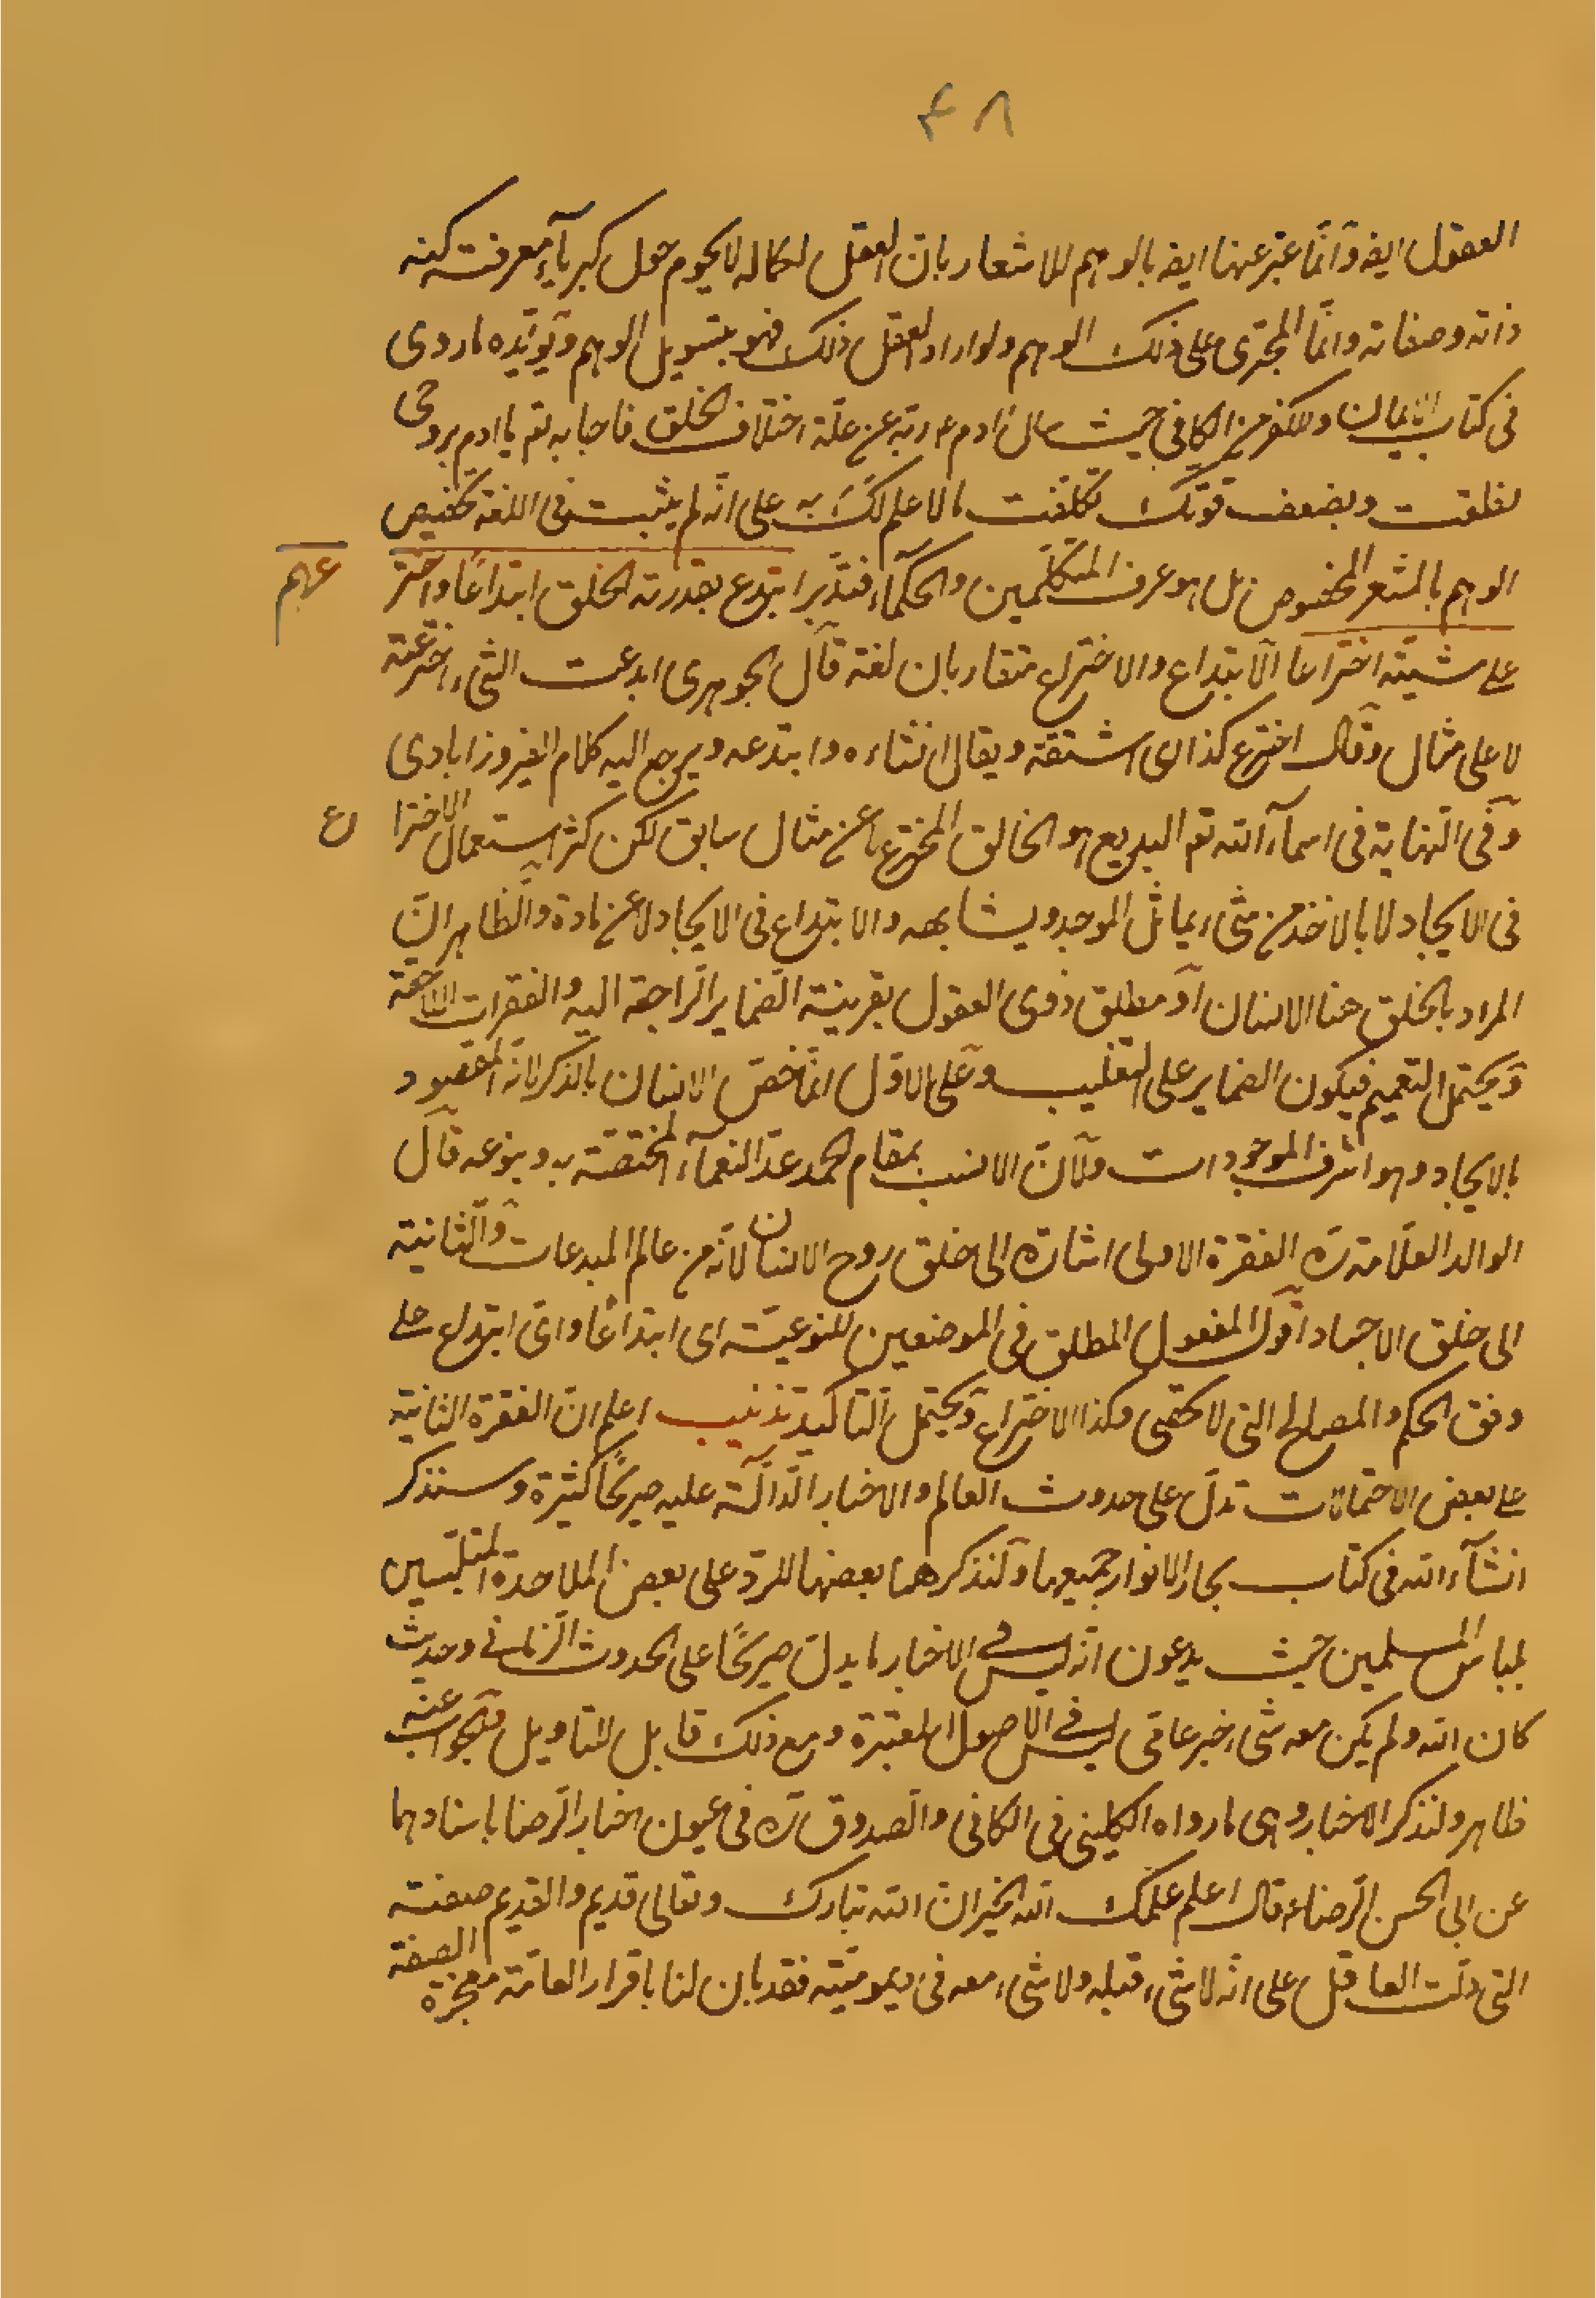 ٤٨
العقول ايضا وانّما عبّر عنها ايضا بالوهم للاشعار بان العقل لكماله لا يحوم حول كبرياء معرفة كنه
ذاته وصفاته وانّما المجترى على ذلك الوهم ولو اراد العقل ذلك فهو بتسويل الوهم ويؤيّده ما روى
فى كتاب الايمان والكفر من الكافى حيث سال ادم ع ربّه عن علّة اختلاف الخلق فاجابه تع يا ادم بروحى
نطقت وبضعف قوّتك تكلّفت ما لا علم لك به على انّه لم يثبت فى اللغة تخصيص
الوهم بالمشعر المخصوص بل هو عرف المتكلّمين والحكماء فتدبّر ابتدع بقدرته الخلق ابتداعًا واختر
عهم
على مشيّته اختراعا الابتداع والاختراع متقاربان لغة قال الجوهرى ابدعت الشىء اخترعته
لا على مثال وقال اخترع كذا اى اشتقه ويقال انشاءه وابتدعه ويرجع اليه كلام الفيروزابادى
وفى النهاية فى اسماء الله تع البديع هو الخالق المخترع لا عن مثال سابق لكن كثر استعمال الاختراع
فى الايجاد لا بالاخذ من شىء يماثل الموجد ويشابهه والابتداع فى الايجاد لا عن مادة والظاهر ان
المراد بالخلق هنا الانسان او مطلق ذوى العقول بقرينة الضماير الراجعة اليه والفقرات اللاحقة
ويحتمل التعميم فيكون الضماير على التغليب وعلى الاوّل انّما خصّ الانسان بالذكر لانّه المقصود
بالايجاد وهو اشرف الموجودات ولانّ الانسب بمقام الحمد عدّ النعماء المختصّة به وبنوعه قال
الوالد العلّامة ره الفقرة الاولى اشارة الى خلق روح الانسان لانّه من عالم المبدعات والثانية
الى خلق الاجساد اقول المفعول المطلق فى الموضعين للنوعيّة اى ابتداعًا واىّ ابتداع على
وفق الحكم والمصالح التى لا تحصى وكذا الاختراع ويحتمل التاكيد تذنيب اعلم ان الفقرة الثانية
على بعض الاحتمالات تدلّ على حدوث العالم والاخبار الدّالّة عليه صريحًا كثيرة وسنذكر
انشاء الله فى كتاب بحار الانوار جميعها ولنذكر هنا بعضها للرد على بعض الملاحدة المتلبّسين
بلباس المسلمين حيث يدعون انّه ليس فى الاخبار ما يدل صريحًا على الحدوث الزمانى وحديث
كان الله ولم يكن معه شىء خبر عامى ليس فى الاصول المعتبرة ومع ذلك قابل للتاويل والجواب عنه
ظاهر ولنذكر الاخبار وهى ما رواه الكلينى فى الكافى والصدوق ره فى عيون اخبار الرضا باسنادهما
عن ابى الحسن الرضا ع قال اعلم علّمك الله الخير ان الله تبارك وتعالى قديم والقديم صفته
التى دلّت العاقل على انّه لا شىء قبله ولا شىء معه فى ديموميّته فقد بان لنا باقرار العامّة معجزة الصفة